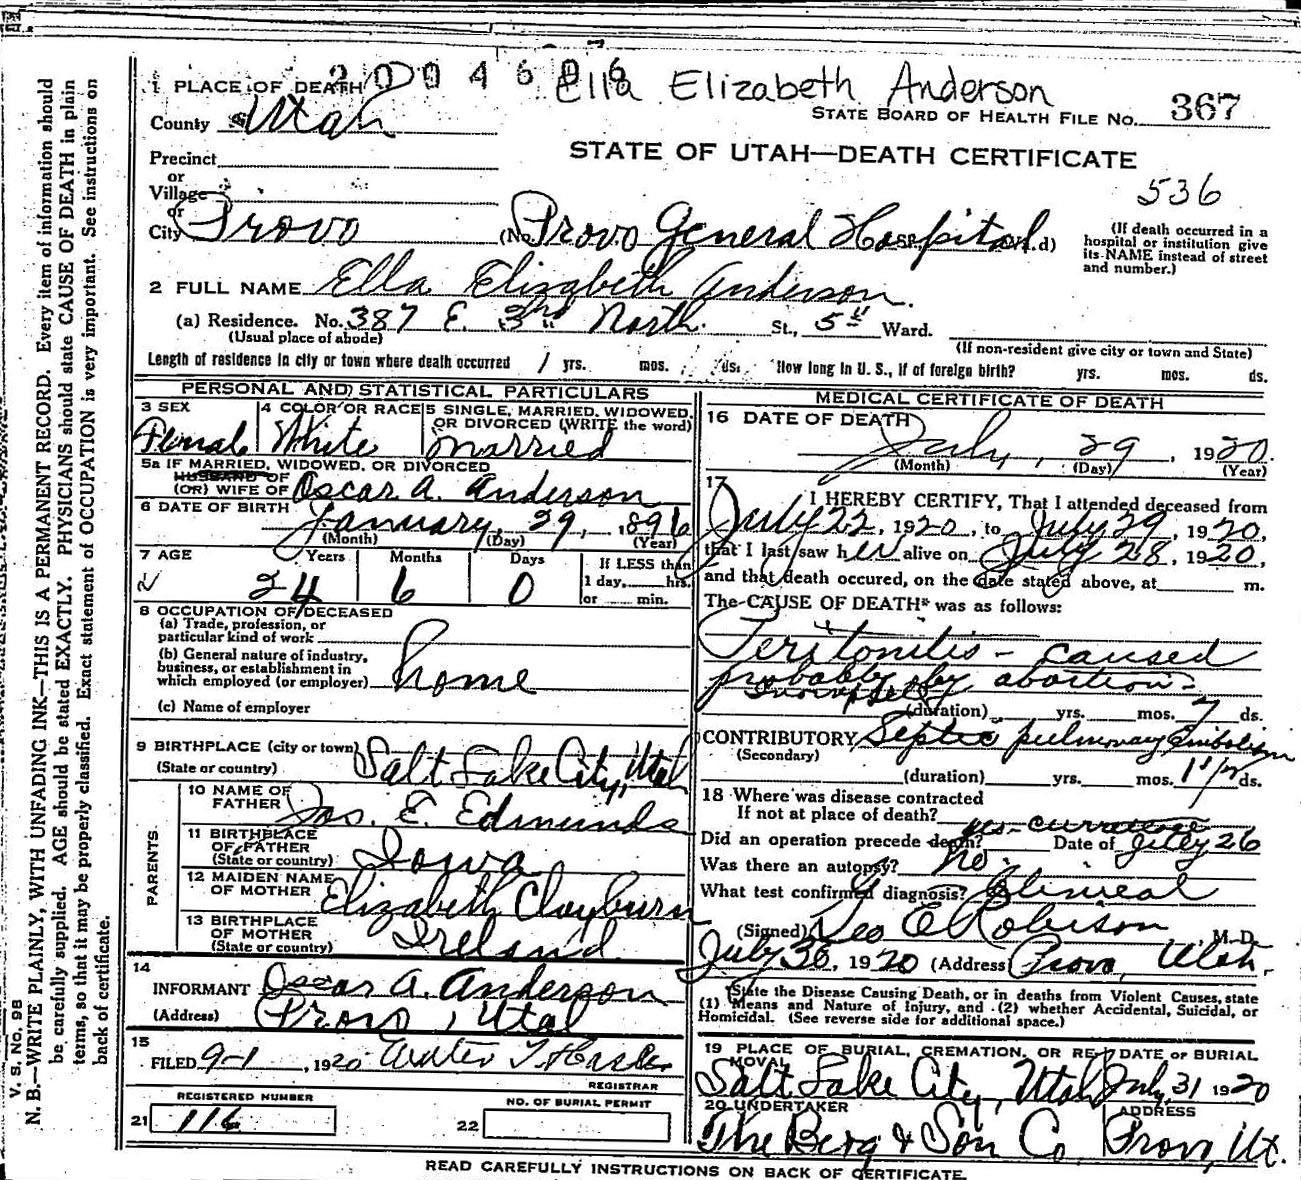 2004606 Ella Elizabeth Anderson
1 PLACE OF DEATH
STATE BOARD OF HEALTH FILE NO. 367
County Utah
STATE OF UTAH—DEATH CERTIFICATE
Precinct
or
Village
536
or
City Provo (No. Provo General Hospital St., Ward)
(If death occurred in a hospital or institution give its NAME instead of street and number.)
2 FULL NAME Ella Elizabeth Anderson.
(a) Residence. No. 387 E. 3rd North. St., 5th Ward.
(Usual place of abode) (If non-resident give city or town and State)
Length of residence in city or town where death occurred 1 yrs. mos. ds. How long in U. S., if of foreign birth? yrs. mos. ds.
PERSONAL AND STATISTICAL PARTICULARS
3 SEX 4 COLOR OR RACE 5 SINGLE, MARRIED, WIDOWED, OR DIVORCED (WRITE the word)
Female White married
5a IF MARRIED, WIDOWED, OR DIVORCED
HUSBAND OF
(OR) WIFE OF Oscar A. Anderson
6 DATE OF BIRTH January, 29, 1896
(Month) (Day) (Year)
7 AGE Years Months Days If LESS than
24 6 0 1 day, hrs.
or min.
8 OCCUPATION OF DECEASED
(a) Trade, profession, or
particular kind of work
(b) General nature of industry,
business, or establishment in
which employed (or employer) home
(c) Name of employer
9 BIRTHPLACE (city or town) Salt Lake City, Utah
(State or country)
PARENTS
10 NAME OF
FATHER Jos. E. Edmunds
11 BIRTHPLACE
OF FATHER
(State or country) Iowa
12 MAIDEN NAME
OF MOTHER Elizabeth Clayburn
13 BIRTHPLACE
OF MOTHER
(State or country) Ireland
14
INFORMANT Oscar A. Anderson
(Address) Provo, Utah
15
FILED 9-1, 1920 Walter T. Hasler
REGISTRAR
REGISTERED NUMBER
21 116
NO. OF BURIAL PERMIT
22
MEDICAL CERTIFICATE OF DEATH
16 DATE OF DEATH
July, 29, 1920.
(Month) (Day) (Year)
17
I HEREBY CERTIFY, That I attended deceased from
July 22, 1920, to July 29, 1920,
that I last saw her alive on July 28, 1920,
and that death occured, on the date stated above, at m.
The CAUSE OF DEATH* was as follows:
Peritonitis - caused
probably by abortion -
(duration) yrs. mos. 7 ds.
CONTRIBUTORY Septic pulmonary Embolism
(Secondary)
(duration) yrs. mos. 1 1/2 ds.
18 Where was disease contracted
If not at place of death?
Did an operation precede death? yes - Date of July 26
Was there an autopsy? no.
What test confirmed diagnosis? Clinical
(Signed) Geo E Robison M. D.
July 30, 1920 (Address Provo, Utah.
*State the Disease Causing Death, or in deaths from Violent Causes, state
(1) Means and Nature of Injury, and (2) whether Accidental, Suicidal, or
Homicidal. (See reverse side for additional space.)
19 PLACE OF BURIAL, CREMATION, OR REMOVAL DATE OF BURIAL
Salt Lake City, Utah July, 31 1920
20 UNDERTAKER ADDRESS
The Berg & Son Co. Provo, Ut.
READ CAREFULLY INSTRUCTIONS ON BACK OF CERTIFICATE.
V. S. NO. 98
N. B.—WRITE PLAINLY, WITH UNFADING INK—THIS IS A PERMANENT RECORD. Every item of information should
be carefully supplied. AGE should be stated EXACTLY. PHYSICIANS should state CAUSE OF DEATH in plain
terms, so that it may be properly classified. Exact statement of OCCUPATION is very important. See instructions on
back of certificate.